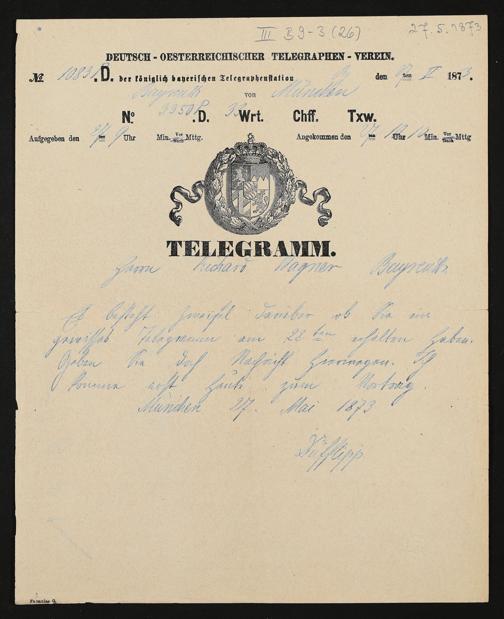 III B 9-3 (26) 27.5.1873
DEUTSCH - OESTERREICHISCHER TELEGRAPHEN - VEREIN.
№ 1083 .D. der königlich bayerischen Telegraphenstation den 27ten V 1873.
Bayreuth von München
No 3350 .D. 33 Wrt. Chff. Txw.
Aufgegeben den 27/ 9 Uhr Min. Vor Nach Mttg. Angekommen den 27/ 10 Uhr Min. Vor Nach Mttg
TELEGRAMM.
Herrn Richard Wagner Bayreuth
Es besteht Zweifel darüber ob Sie ein
gewisses Telegramm am 22ten erhalten haben.
Geben Sie doch Nachricht hierwegen. Ich
komme erst heute zum Vortrag.
München 27. Mai 1873
Düfflipp